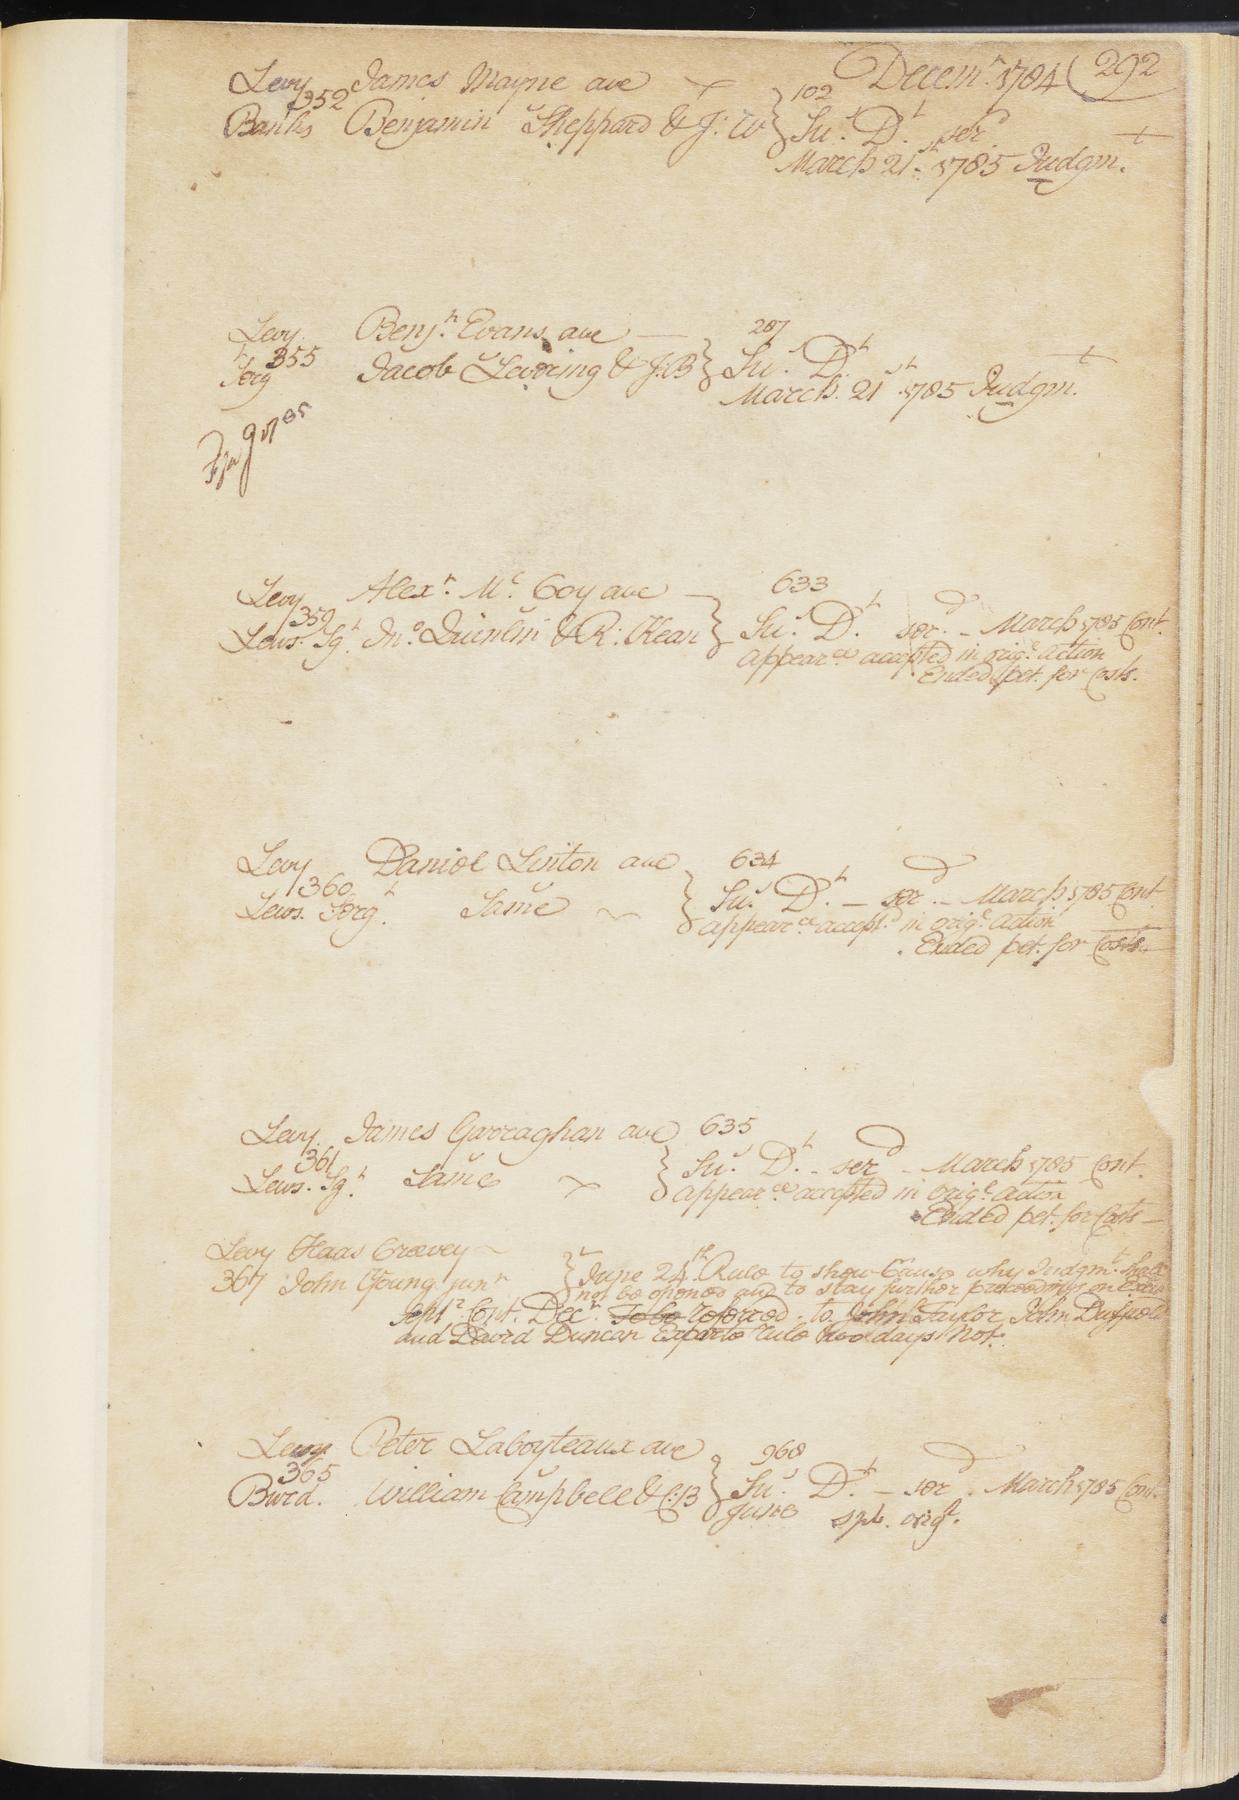 Decemr. 1784 (292
Levy James Mayne ave 102
352
Banks Benjamin Sheppard & J: W } Su.s Dt. serd
March 21st. 1785 Judgm.t
Levy Benj.n Evans ave — 207
355
Serg.t Jacob Levering & J:B } Su.s D.t
March 21st. 1785 Judgm.t
Levy Alexr. Mc. Coy ave — 633
359
Lews. Sg.t Jn.o Quinlin & R: Kean } Su.s D.t serd. – March 1785 Cont.
appear.ce accepted in orig.l action
Ended pet. for Costs.
Levy Daniel Linton ave 634
360
Lews. Serg.t Same } Su.s D.t — serd. – March 1785 Cont
appear.ce accept.d in orig.l action
Ended pet. for Costs.
Levy James Garraghan ave 635
361
Lews. Sg.t Same } Su.s D.t – serd – March 1785 Cont.
appear.ce accepted in orig.l action
Ended pet. for Costs —
Levy Haas Creevey
367 John Young junr } June 24.th Rule to show Cause why Judgm.t shall
not be opened and to stay further proceedings on
Sept.r Cont. Decr. To be referred to John Taylor, John
and David Duncan Exparte rule days Not.
Levy Peter Laboyteaux ave 968
365
Burd. William Campbell & C:B } Su.s D.t — serd. March 1785 Con.
June spl. orig.l